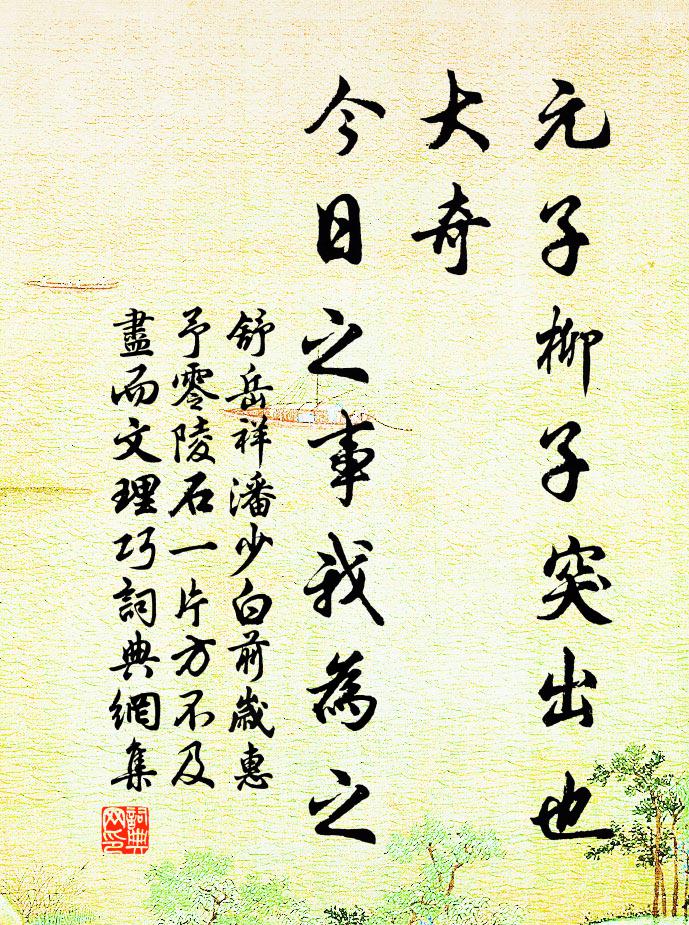 元子柳子突出也
大奇
今日之事我為之
舒岳祥潘少白前歲惠
予零陵石一片方不及
盡而文理巧詞典網集
詞典
网印